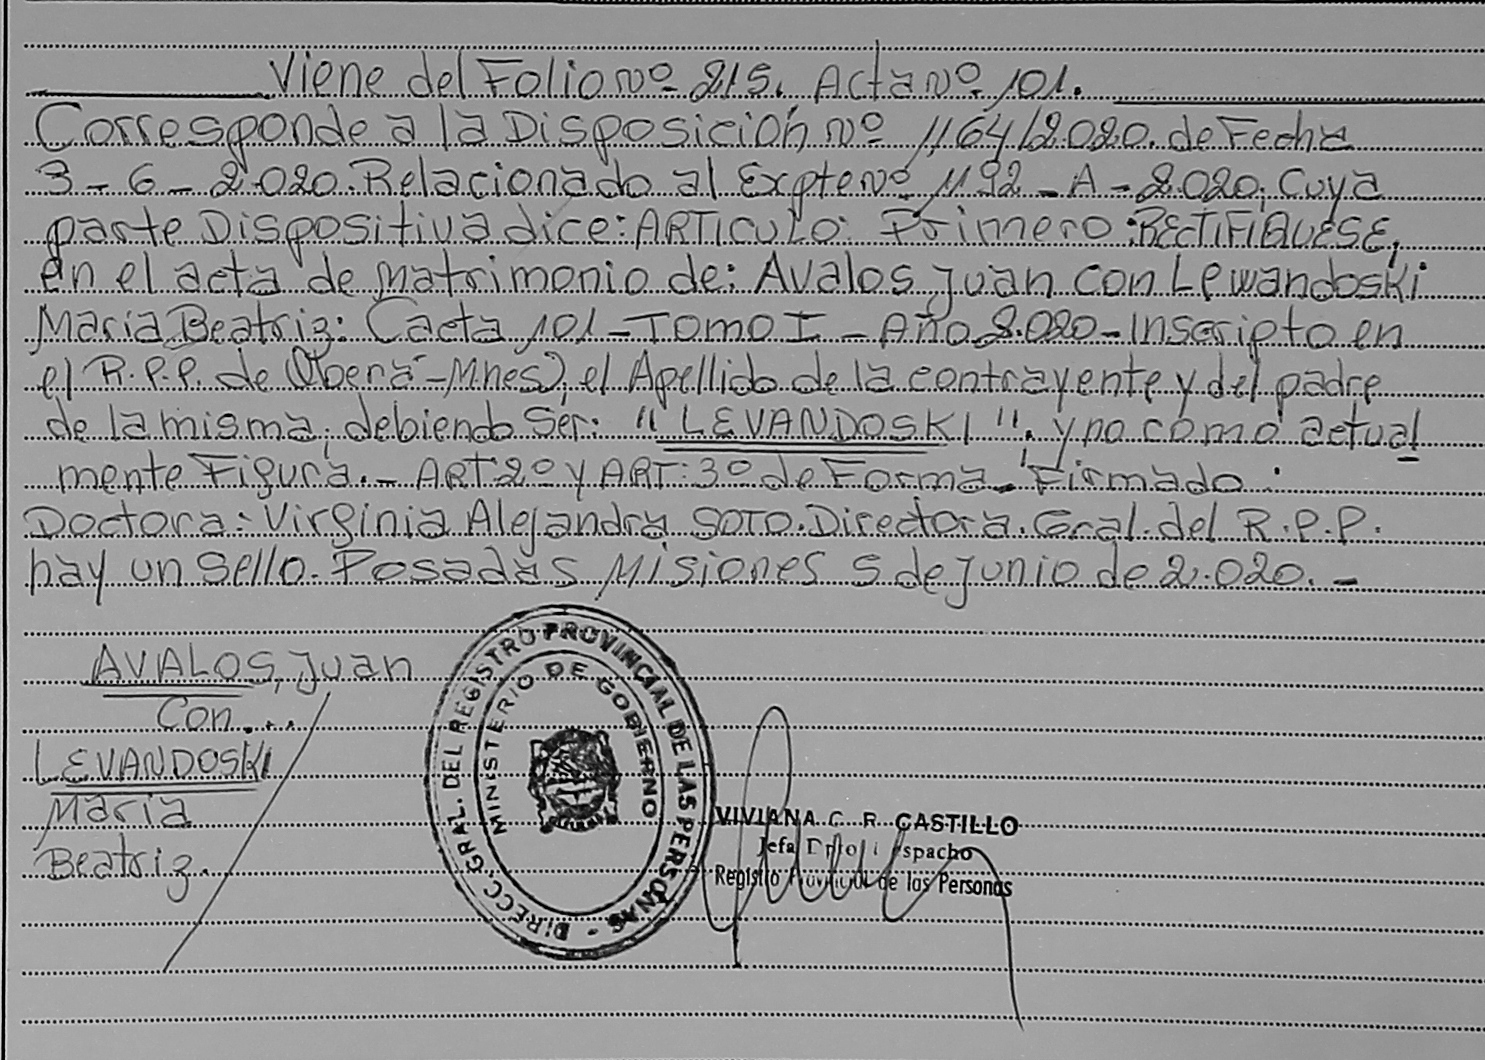 Viene del Folio Nº 215. Acta Nº 101.
Corresponde a la Disposición Nº 1164/2.020. de Fecha
3-6-2.020. Relacionado al Expte Nº 1192-A-2.020, Cuya
parte Dispositiva dice: ARTICULO: Primero: RECTIFIQUESE,
en el acta de matrimonio de: Avalos Juan con Lewandoski
Maria Beatriz: (acta 101-TOMO I-Año 2.020-Inscripto en
el R.P.P. de Oberá-Mnes), el Apellido de la contrayente y del padre
de la misma, debiendo ser: "LEVANDOSKI", y no como actual
mente Figura.- ART: 2º y ART: 3º de Forma. Firmado:
Doctora: Virginia Alejandra SOTO. Directora. Gral. del R.P.P.
hay un sello. Posadas Misiones 5 de Junio de 2.020.-
AVALOS, Juan
Con...
LEVANDOSKI
Maria
Beatriz.
DIRECC. GRAL. DEL REGISTRO PROVINCIAL DE LAS PERSONAS -
MINISTERIO DE GOBIERNO
VIVIANA C. R. CASTILLO
Jefa
Registro Provincial de las Personas